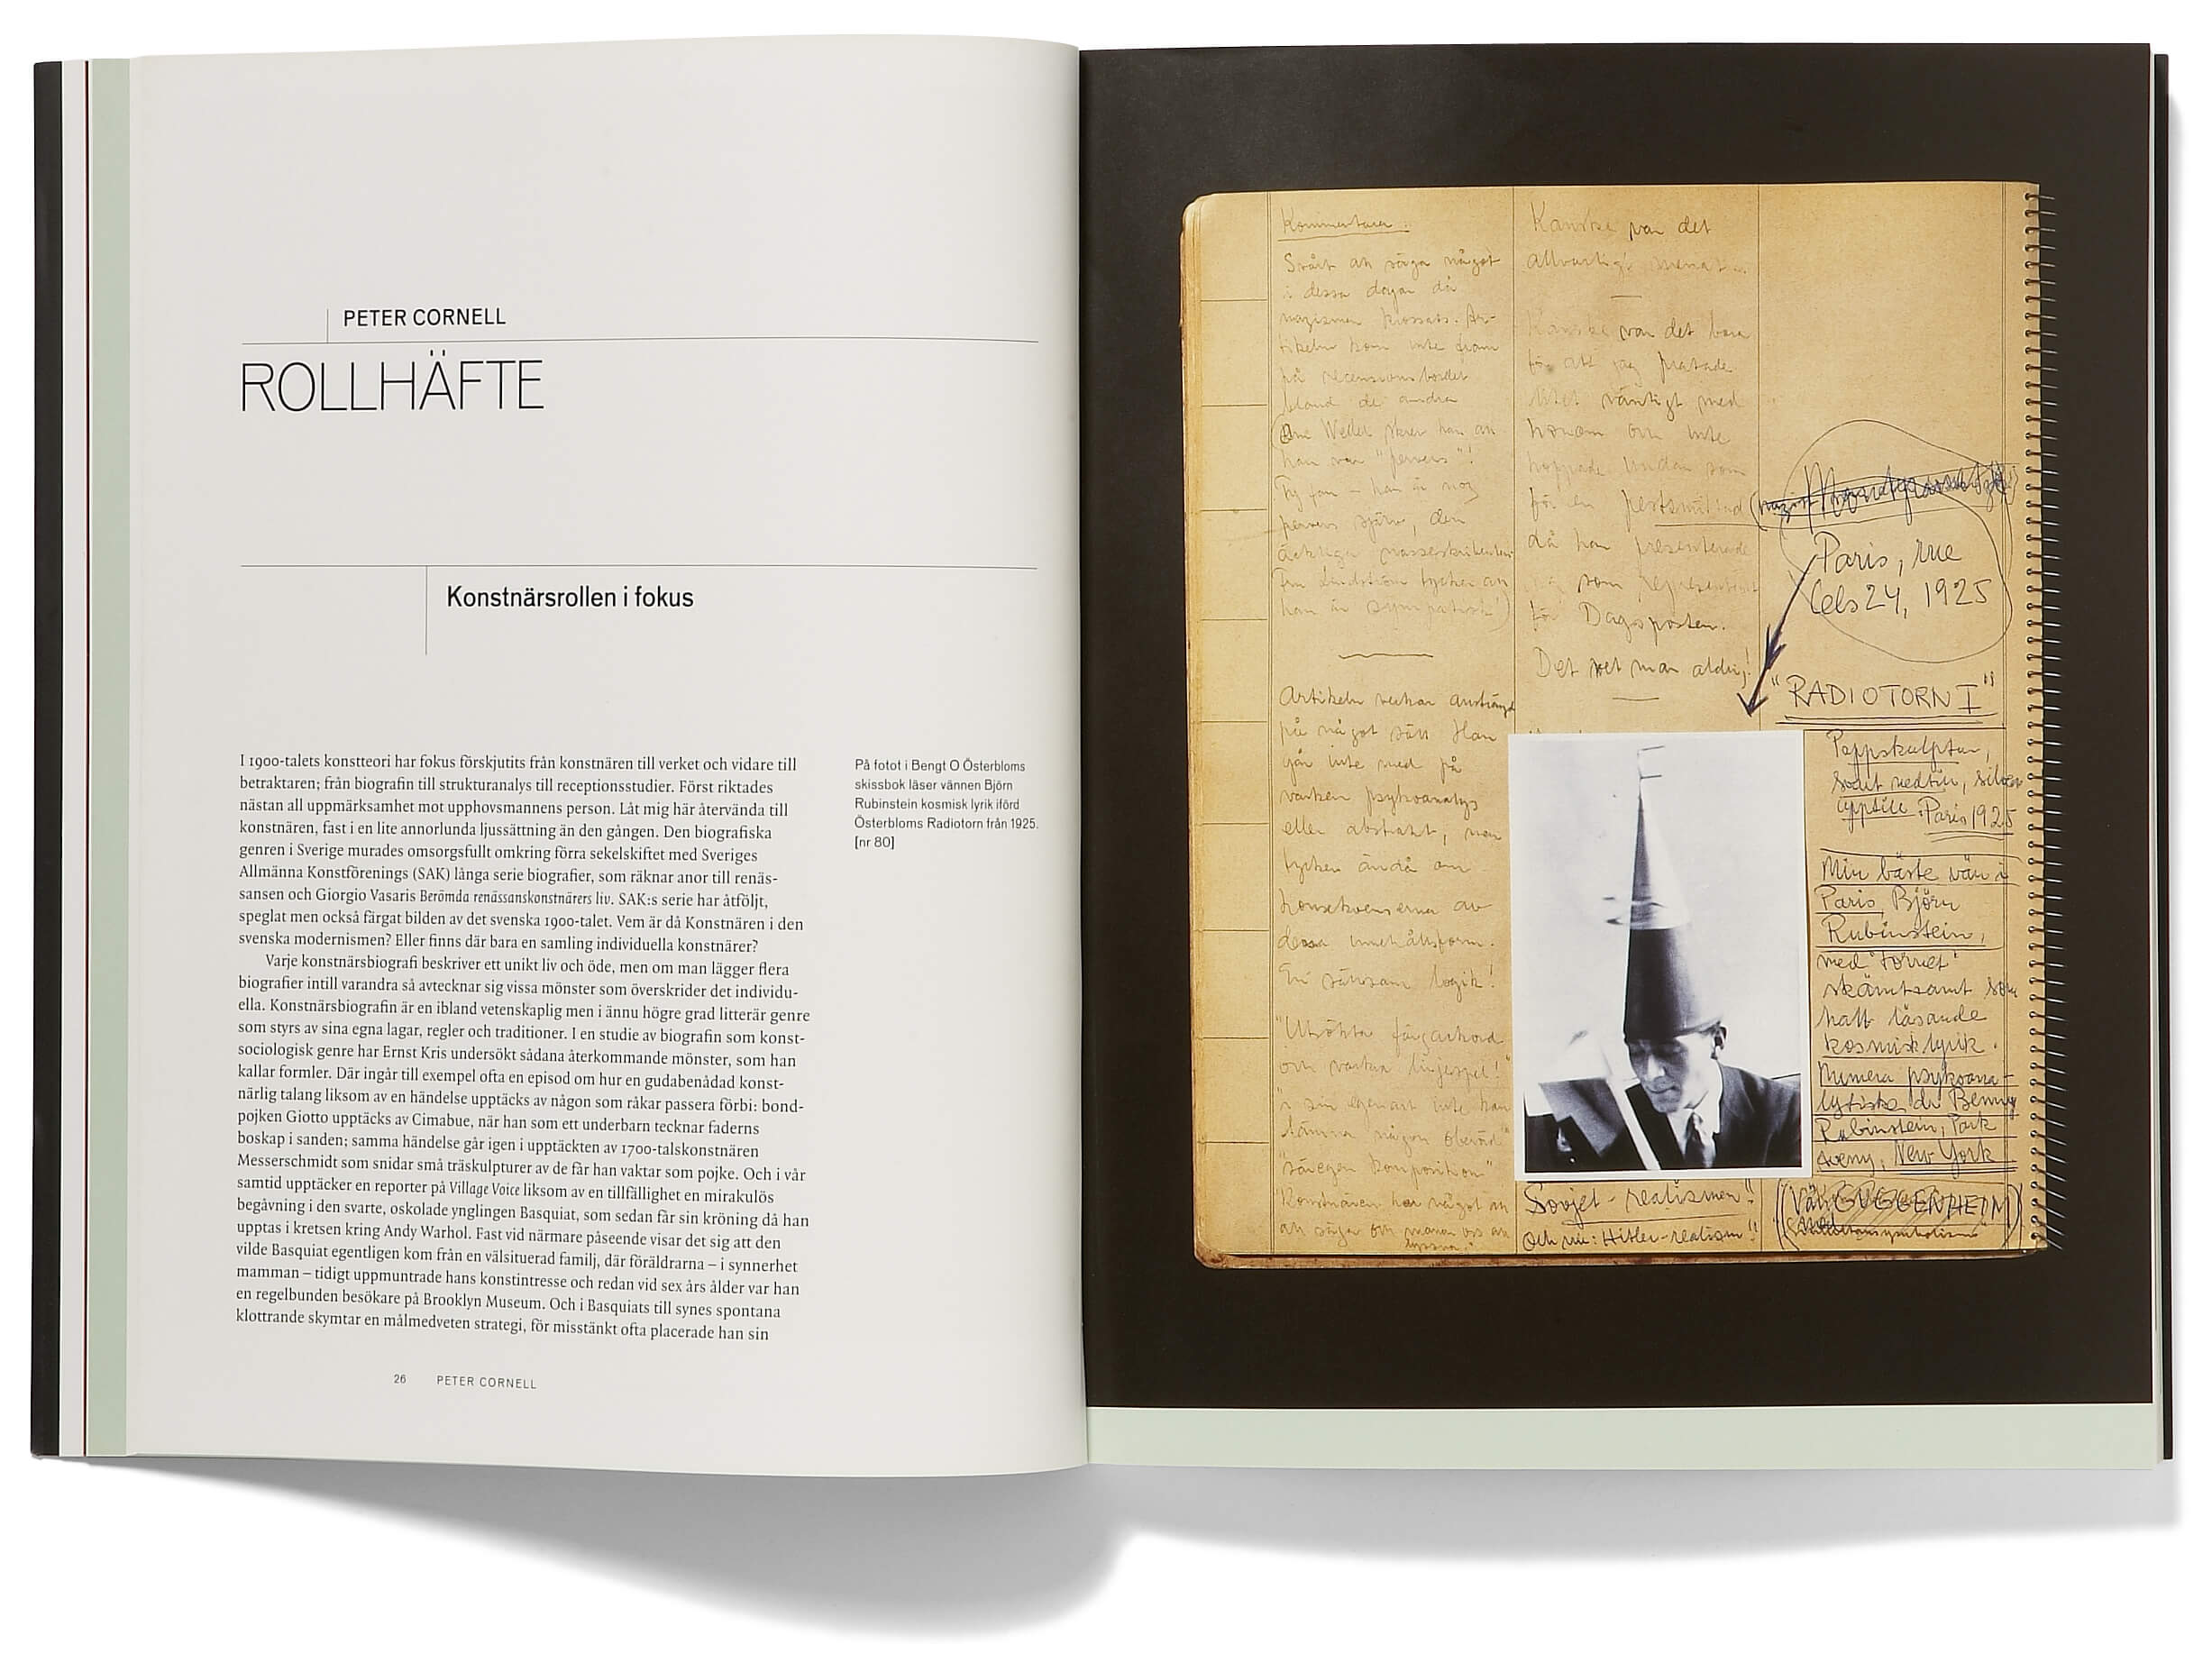 PETER CORNELL
ROLLHÄFTE
Konstnärsrollen i fokus
I 1900-talets konstteori har fokus förskjutits från konstnären till verket och vidare till
betraktaren; från biografin till strukturanalys till receptionsstudier. Först riktades
nästan all uppmärksamhet mot upphovsmannens person. Låt mig här återvända till
konstnären, fast i en lite annorlunda ljussättning än den gången. Den biografiska
genren i Sverige murades omsorgsfullt omkring förra sekelskiftet med Sveriges
Allmänna Konstförenings (SAK) långa serie biografier, som räknar anor till renäs-
sansen och Giorgio Vasaris Berömda renässanskonstnärers liv. SAK:s serie har åtföljt,
speglat men också färgat bilden av det svenska 1900-talet. Vem är då Konstnären i den
svenska modernismen? Eller finns där bara en samling individuella konstnärer?
Varje konstnärsbiografi beskriver ett unikt liv och öde, men om man lägger flera
biografier intill varandra så avtecknar sig vissa mönster som överskrider det individu-
ella. Konstnärsbiografin är en ibland vetenskaplig men i ännu högre grad litterär genre
som styrs av sina egna lagar, regler och traditioner. I en studie av biografin som konst-
sociologisk genre har Ernst Kris undersökt sådana återkommande mönster, som han
kallar formler. Där ingår till exempel ofta en episod om hur en gudabenådad konst-
närlig talang liksom av en händelse upptäcks av någon som råkar passera förbi: bond-
pojken Giotto upptäcks av Cimabue, när han som ett underbarn tecknar faderns
boskap i sanden; samma händelse går igen i upptäckten av 1700-talskonstnären
Messerschmidt som snidar små träskulpturer av de får han vaktar som pojke. Och i vår
samtid upptäcker en reporter på Village Voice liksom av en tillfällighet en mirakulös
begåvning i den svarte, oskolade ynglingen Basquiat, som sedan får sin kröning då han
upptas i kretsen kring Andy Warhol. Fast vid närmare påseende visar det sig att den
vilde Basquiat egentligen kom från en välsituerad familj, där föräldrarna – i synnerhet
mamman – tidigt uppmuntrade hans konstintresse och redan vid sex års ålder var han
en regelbunden besökare på Brooklyn Museum. Och i Basquiats till synes spontana
klottrande skymtar en målmedveten strategi, för misstänkt ofta placerade han sin
På fotot i Bengt O Österbloms
skissbok läser vännen Björn
Rubinstein kosmisk lyrik iförd
Österbloms Radiotorn från 1925.
[nr 80]
26 PETER CORNELL
Kommentarer
Svårt att säga något
i dessa dagar då
nazismen krossats. Ar-
tikeln kom inte fram
på recensionsbordet
bland de andra
han var "pervers"!
Fy fan – han är nog
pervers själv, den
han är sympatisk!)
Artikeln verkar ansträngd
på något sätt Han
går inte med på
varken psykoanalys
eller abstrakt, men
tycker ändå om
konsekvenserna av
dessa
En sällsam logik!
"Utsökta färgackord
och vackra linjespel!"
i sin egenart inte kan
lämna någon oberörd"
"säregen komposition"
Konstnären har något att
Kanske var det
allvarligt menat..
Kanske var det bara
för att jag pratade
litet vänligt med
honom och inte
hoppade undan som
för en pestsmittad
då han presenterade
sig som representant
för Dagsposten.
Det vet man aldrig!
Paris, rue
Cels 24, 1925
"RADIOTORN I"
Pappskulptur,
svart nedtill, silver
upptill. Paris 1925
Min bäste vän i
Paris, Björn
Rubinstein,
med "tornet"
skämtsamt som
hatt läsande
kosmisk lyrik.
Numera psykoana-
lytiske dr Benny
Rubinstein, Park
aveny, New York
Sovjet-realismen!
Och nu: Hitler-realism!!
(Vän GUGGENHEIM)